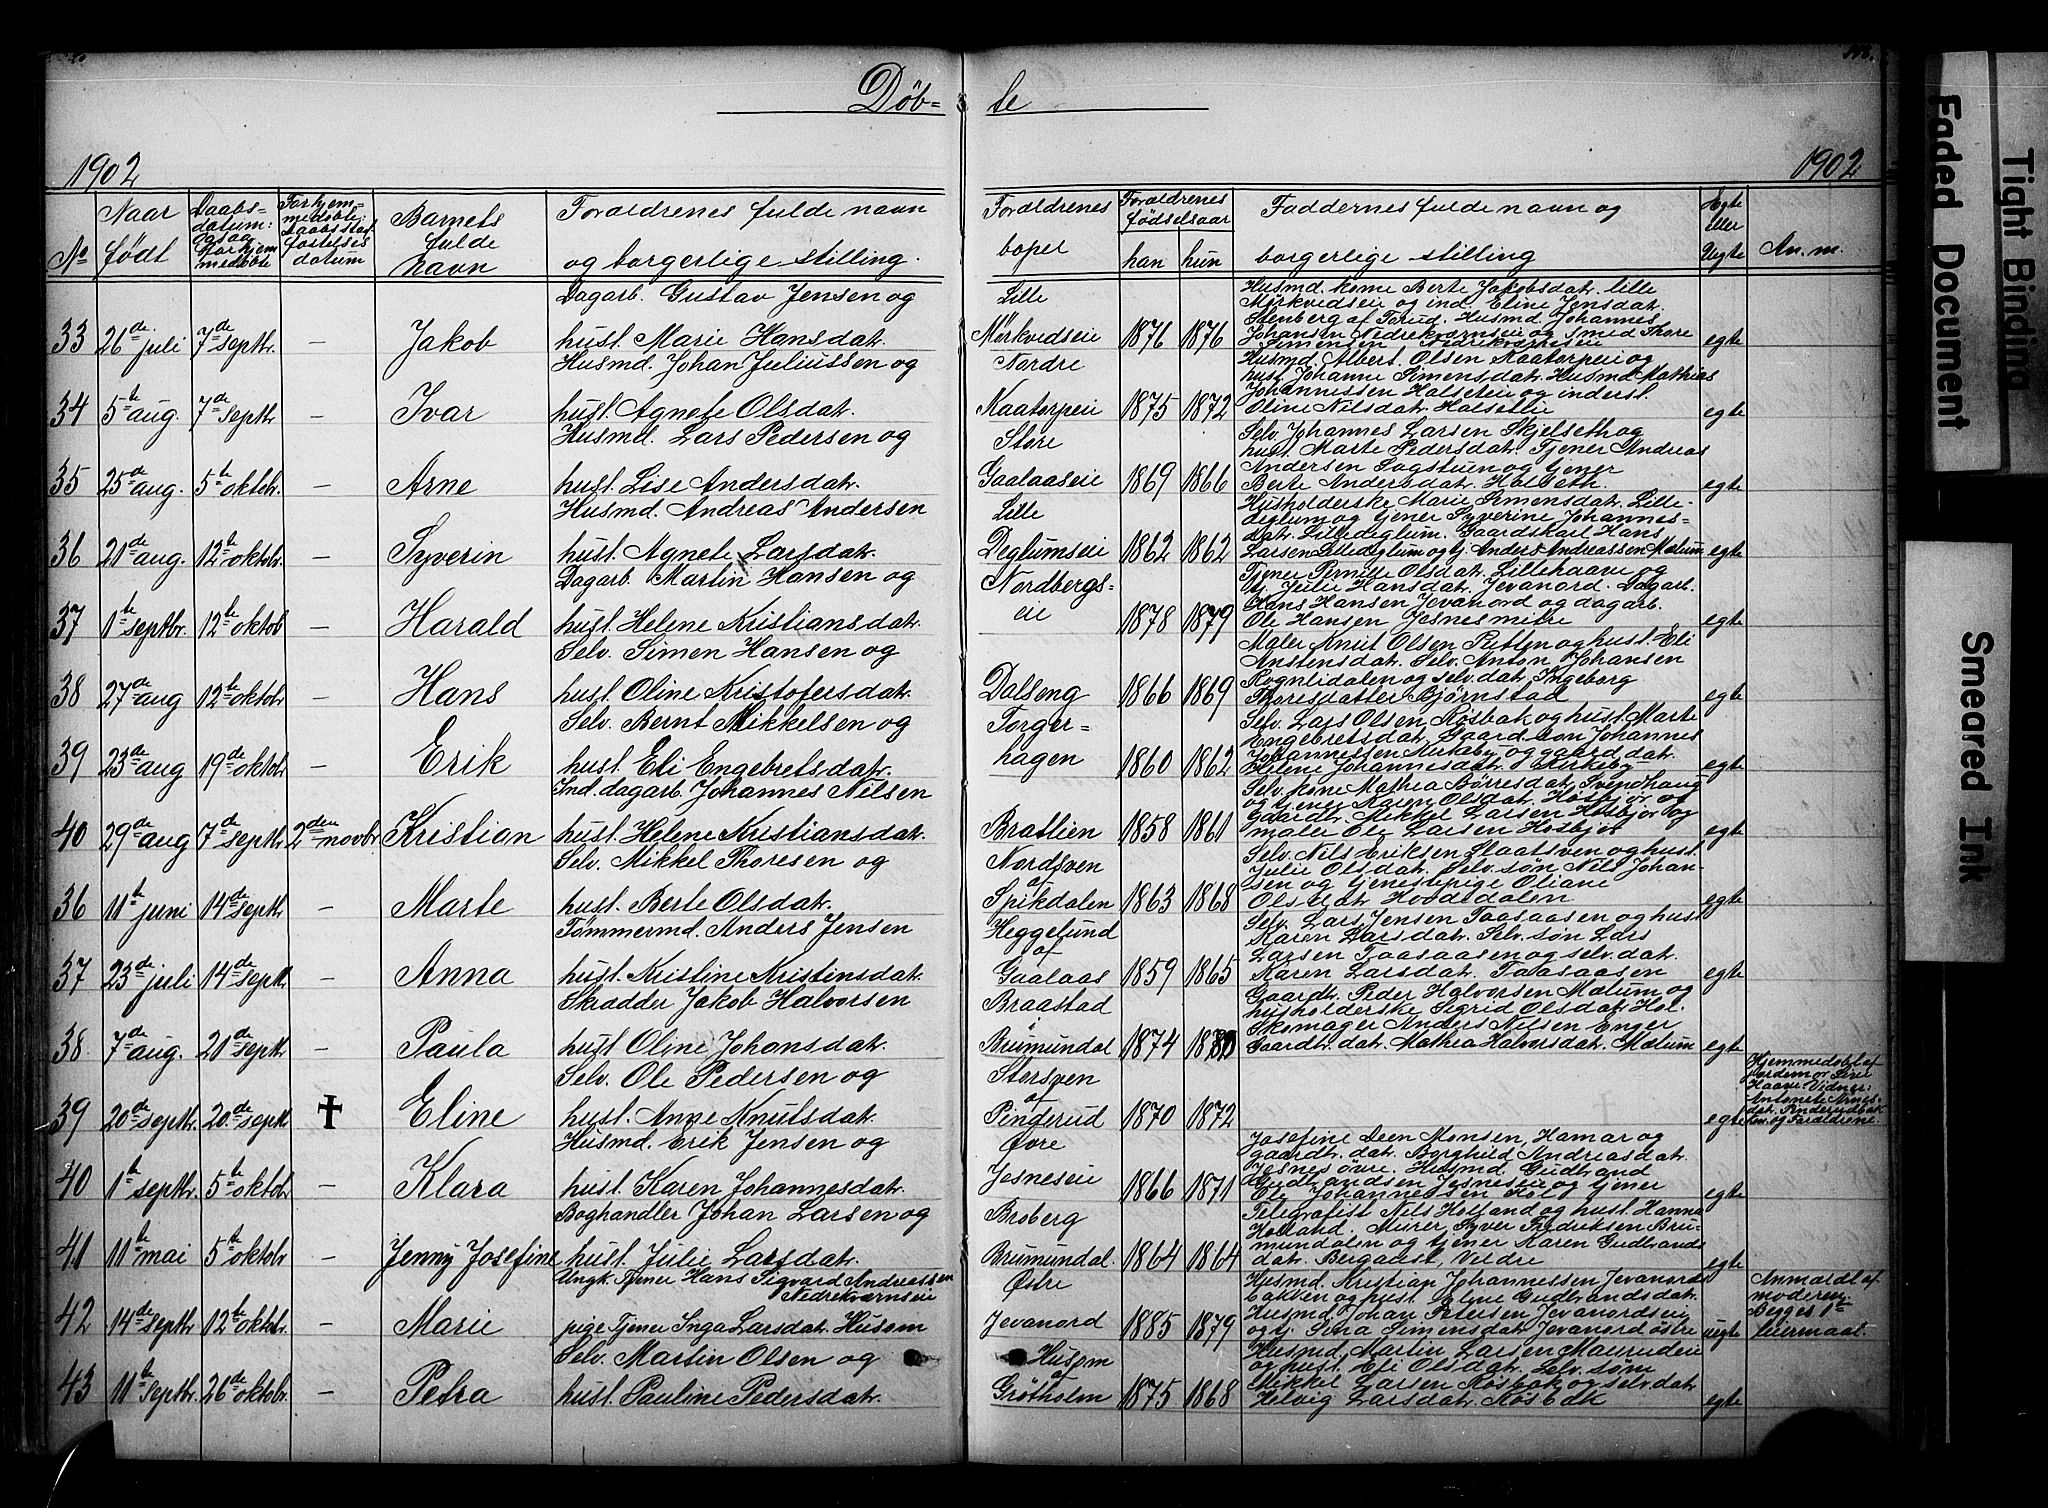 Døb=
te
1902
1902
No
Naar født
Daabsdatum: ogsaa for hjemmedøbte
For hjemmedøbte: daabsstadfæstelsesdatum
Barnets fulde navn
Forældrenes fulde navn og borgerlige stilling.
Forældrenes bopæl
Forældrenes fødselsaar
han hun
Faddernes fulde navn og borgerlige stilling
Egte eller Uegte
An.m.
33 26de juli 7de septbr. – Jakob
Dagarb. Gustav Jensen og
hust. Marie Hansdatr.
Lille
Mørkvedseie 1876 1876
Husmd. kone Berte Jakobsdatr. lille
Mørkvedseie og ind. Eline Jensdatr.
Stenberg af Torud. Husmd. Johannes
Johansen Nedrekværnseie og Smed Thore
Simensen Nedrekværnseie egte
34 5te aug. 7de septbr – Ivar
Husmd. Johan Juliussen og
hust. Agnete Olsdatr.
Nordre
Kaatorpeie 1875 1872
Husmd. Albert Olsen Kaatorpeie og
hust. Johanne Simensdatr. Husmd. Mathias
Johannissen Halseteie og inderst.
Oline Nilsdatr. Halseteie egte
35 25de aug. 5te oktobr. – Arne
Husmd. Lars Pedersen og
hust. Lise Andersdatr.
Store
Gaalaaseie 1869 1866
Selv. Johannes Larsen Skjelseth og
hust. Marte Pedersdatr. Tjener Andreas
Andersen Sagstuen og tjener
Berte Andersdatr. Halseth. egte
36 21de aug. 12te oktobr. – Syverin
Husmd. Andreas Andersen
hust. Agnete Larsdatr.
Lille
Deglumseie 1862 1862
Husholderske Marie Simensdatr. Lille-
deglum og tjener Syverine Johannes-
datr. Lilledeglum. Gaardskarl Hans
Larsen Lilledeglum og tj. Anders Andreassen Mælum egte
37 1te septbr. 12te oktob – Harald
Dagarb. Martin Hansen og
hust. Helene Kristiansdatr.
Nordbergs-
eie 1878 1879
Tjener Pernille Olsdatr. Lillehaave og
tj. Julie Hansdatr. Jevanord. Dagarb.
Hans Hansen Jevanord og dagarb.
Ole Hansen Jesnesmitre egte
38 27de aug 12te oktobr – Hans
Selv. Simen Hansen og
hust. Oline Kristofersdatr.
Dalseng 1866 1869
Maler Knut Olsen Petlen og hust. Eli
Anstensdatr. Selv. Anton Johansen
Rognlidalen og selv. datr. Ingeborg
Thoresdatter Bjørnstad egte
39 23de aug 19de oktobr – Erik
Selv. Bernt Mikkelsen og
hust. Eli Engebretsdatr.
Torger-
hagen 1860 1862
Selv. Lars Olsen Røsbak og hust. Marte
Engebretsdatr. Gaard. søn Johannes
Johannessen Kirkeby og gaard. datr.
Helene Johannesdatr. Kirkeby egte
40 29de aug 7de septbr 2den novbr Kristian
Ind. dagarb. Johannes Nilsen
hust. Helene Kristiansdatr.
Brattlien 1858 1861
Selv. kone Mathea Børresdatr. Svendhaug
og tjener Karen Olsdatr. Høsbjør og
gaardbr. Mikkel Larsen Høsbjør og
maler Ole Larsen Høsbjør egte
36 11te juni 14de septbr – Marte
Selv. Mikkel Thoresen og
hust. Berte Olsdatr.
Nordsven
af
Spikdalen 1863 1868
Selv. Nils Eriksen Staatsven og hust.
Julie Olsdatr. Selv. søn Nils Johan-
sen og tjenestepige Oliane
Olsdatr. Hovdsdalen egte
37 23de juli 14de septbr – Anna
Tømmermd. Anders Jensen
hust. Kristine Kristensdatr.
Heggelund
af
Gaalaas 1859 1865
Selv. Lars Jensen Taasaasen og hust.
Karen Larsdatr. Selv. søn Lars
Larsen Taasaasen og selv. datr.
Karen Larsdatr. Taasaasen egte
38 7de aug. 21de septbr – Paula
Skrædder Jakob Halvorsen
hust. Oline Johansdatr.
Braastad
i
Brumundal 1874 1870
Gaardbr. Peder Halvorsen Mælum og
husholderske Sigrid Olsdatr. Hol.
Skomager Anders Nilsen Enger
Gaardbr. datr. Mathea Halvorsdatr. Mælum egte
39 20de septbr 20de septbr † Eline
Selv. Ole Pedersen og
hust. Anne Knutsdatr.
Storsven
af
Pingerud 1870 1872 egte
Hjemmedøbt af
jordemor Line
Haave. Vidner:
Antonete Arnes-
datr. Pinderudbak-
ken og Forældrene.
40 1te septbr. 5te oktobr – Klara
Husmd. Erik Jensen og
hust. Karen Johannesdatr.
Øvre
Jesneseie 1866 1871
Josefine Deen Monsen, Hamar og
gaardbr. datr. Borghild Andreasdatr.
Jesnes øvre. Husmd. Gudbrand
Gudbrandsen Jesneseie og tjener
Ole Johannessen Hold egte
41 11te mai 5te oktobr – Jenny Josefine
Boghandler Johan Larsen og
hust. Julie Larsdatr.
Broberg
Brumundal. 1864 1864
Telegrafist Nils Holland og hust. Hanna
Holland. Murer Syver Fredriksen Bru-
mundalen og tjener Karen Gudbrands-
datr. Bergaast, Veldre egte
42 14de septbr 12te oktobr. – Marie
Ungk. Tjener Hans Sigvard Andreassen
Nedrekværnseie
pige Tjener Inga Larsdatr. Husom
Østre
Jevanord 1885 1879
Husmd. Kristian Johannessen Jevanords-
bakken og hust. Eline Gudbrandsdatr.
Husmd. Johan Petersen Jevanordseie
og tj. Sina Simensdatr. Jevanord østre uegte
Anmældt af
moderen.
Begges 1te
leiermaal.
43 11te septbr. 26de oktobr. – Petra
Selv. Martin Olsen og
hust. Pauline Pedersdatr.
Husom
af
Grøtholm 1875 1868
Husmd. Martin Larsen Maurudeie
og hust. Eli Olsdatr. Selv. søn
Mikkel Larsen Røsbak og selv. datr.
Helvig Larsdatr. Røsbak egte
Tight Binding
Faded Document
Smeared Ink